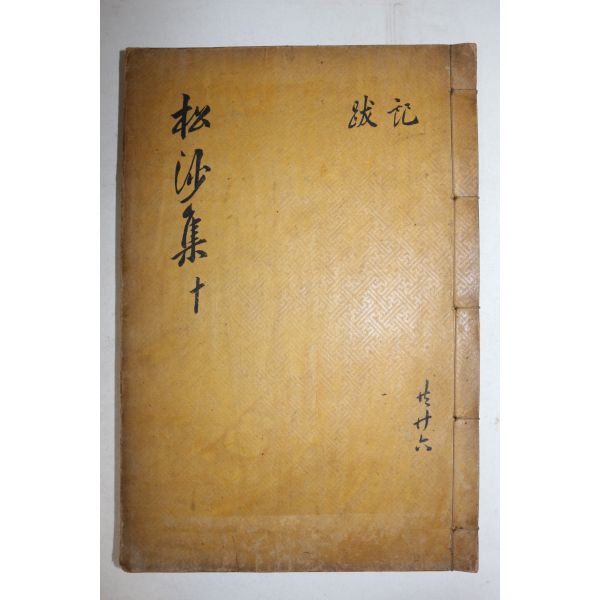 松沙集 十
記
跋
共廿六